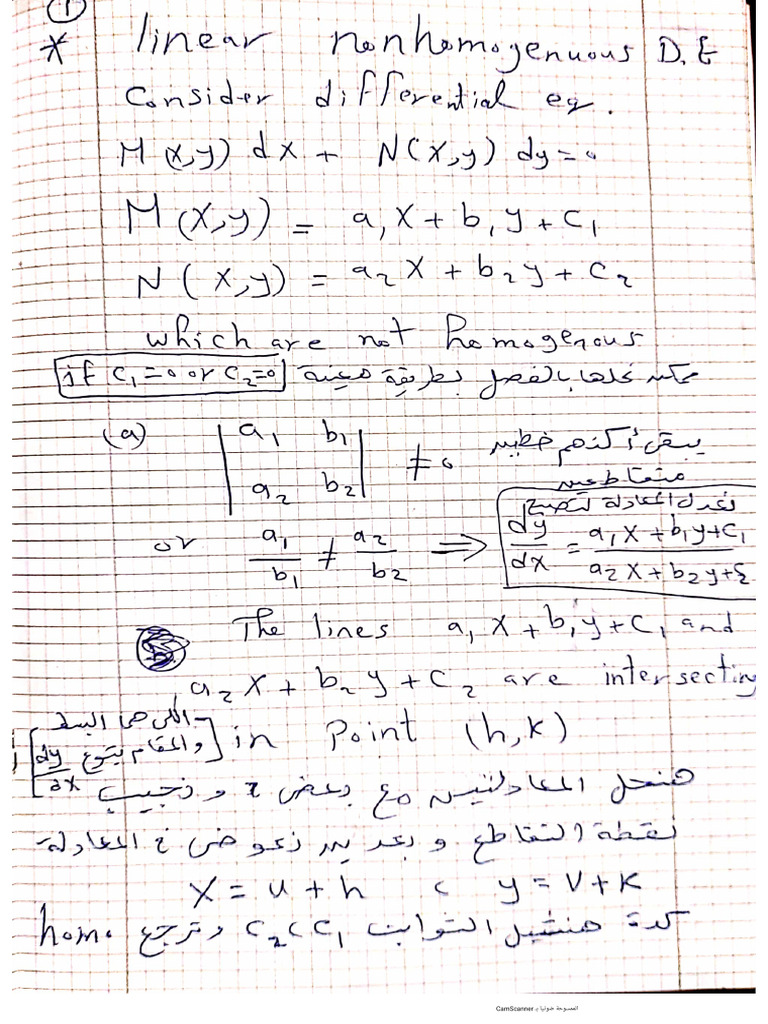 1
* linear nonhomogenuous D.E
Consider differential eq.
M(x,y) dx + N(x,y) dy = 0
M(x,y) = a₁x + b₁y + c₁
N(x,y) = a₂x + b₂y + c₂
which are not homogenous
if c₁=0 or c₂=0 ممكن نحلها بالفصل بطريقة معينة
(a) | a₁ b₁ | يبقى أكنهم خطين
| a₂ b₂ | ≠ 0 متقاطعين
نعدل المعادلة لتصبح
or a₁/b₁ ≠ a₂/b₂ ⟹ dy/dx = a₁x+b₁y+c₁ / a₂x+b₂y+c₂
The lines a₁x+b₁y+c₁ and
a₂x+b₂y+c₂ are intersecting
in Point (h,k) اللى هما البسط
والمقام بتوع dy/dx
هنحل المعادلتين مع بعض و نجيب
نقطة التقاطع و بعدين نعوض فى المعادلة
x = u+h , y = v+k
كدة هنشيل الثوابت c₁, c₂ وترجع homo.
الممسوحة ضوئيا بـ CamScanner